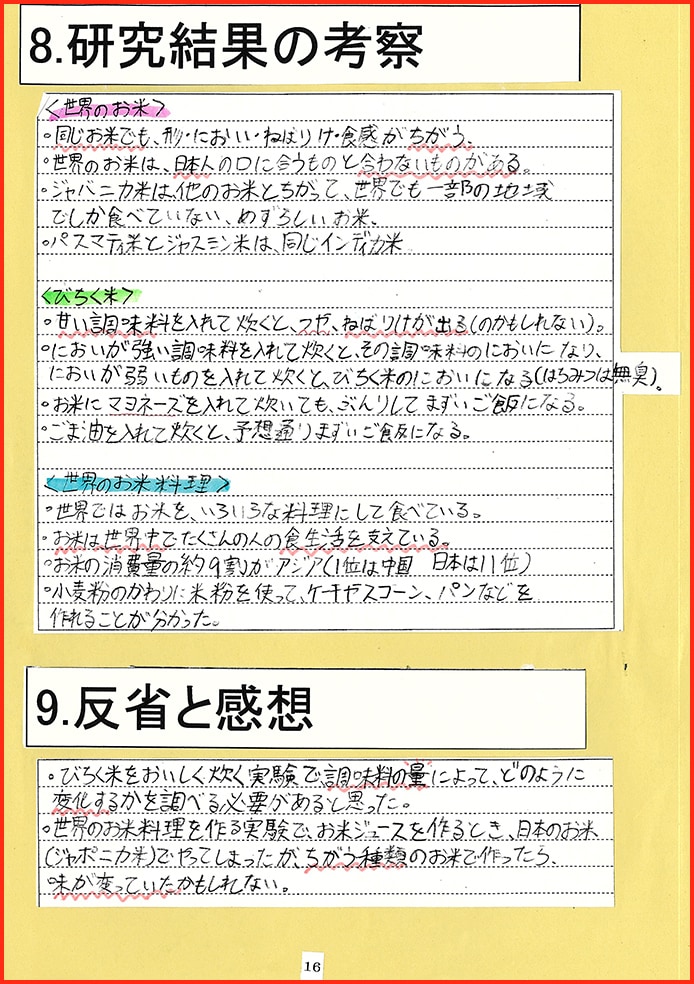 8.研究結果の考察
<世界のお米>
・同じお米でも、形・におい・ねばりけ・食感がちがう。
・世界のお米は、日本人の口に合うものと合わないものがある。
・ジャバニカ米は、他のお米とちがって、世界でも一部の地域
でしか食べていない、めずらしいお米、
・パスマティ米とジャスミン米は、同じインディカ米
<びちく米>
・甘い調味料を入れて炊くと、つや、ねばりけが出る(のかもしれない)。
・においが強い調味料を入れて炊くと、その調味料のにおいになり、
においが弱いものを入れて炊くと、びちく米のにおいになる(はちみつは無臭)。
・お米にマヨネーズを入れて炊いても、ぶんりしてまずいご飯になる。
・ごま油を入れて炊くと、予想通りまずいご飯になる。
<世界のお米料理>
・世界ではお米を、いろいろな料理にして食べている。
・お米は世界中でたくさんの人の食生活を支えている。
・お米の消費量の約9割がアジア(1位は中国 日本は11位)
・小麦粉のかわりに米粉を使って、ケーキやスコーン、パンなどを
作れることが分かった。
9.反省と感想
・びちく米をおいしく炊く実験で調味料の量によって、どのように
変化するかを調べる必要があると思った。
・世界のお米料理を作る実験で、お米ジュースを作るとき、日本のお米
(ジャポニカ米)でやってしまったが、ちがう種類のお米で作ったら、
味が変っていたかもしれない。
16